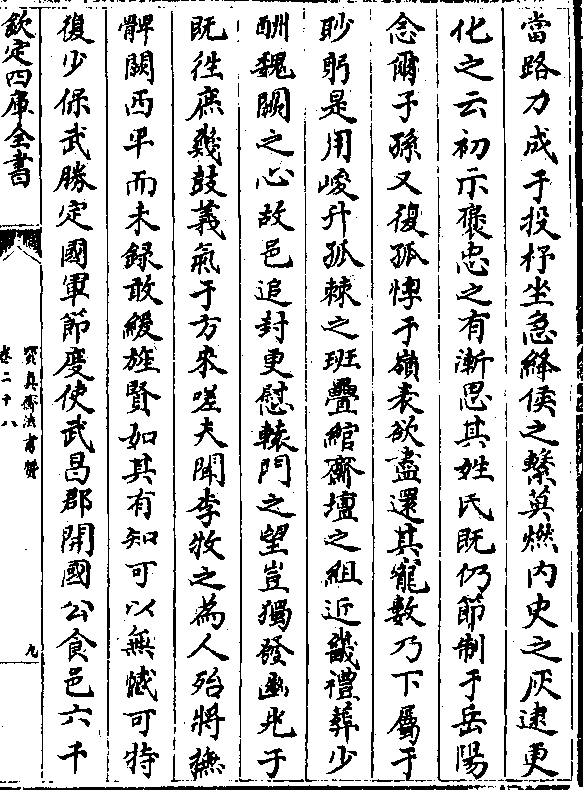 當路力成于投杼坐急絳侯之繫莫燃内史之灰逮更
化之云初示襃忠之有漸思其姓氏既仍節制于岳陽
念爾子孫又復孤惸于嶺表欲盡還其寵數乃下屬于
眇躬是用峻升孤棘之班疊綰齋壇之組近畿禮葬少
酬魏闕之心故邑追封更慰轅門之望豈獨發幽光于
既徃庶幾鼓義氣于方來嗟夫聞李牧之為人殆將撫
髀闕西平而未録敢緩旌賢如其有知可以無憾可特
復少保武勝定國軍節度使武昌郡開國公食邑六千
欽定四庫全書
寳真齋法書贊
卷二十八
九